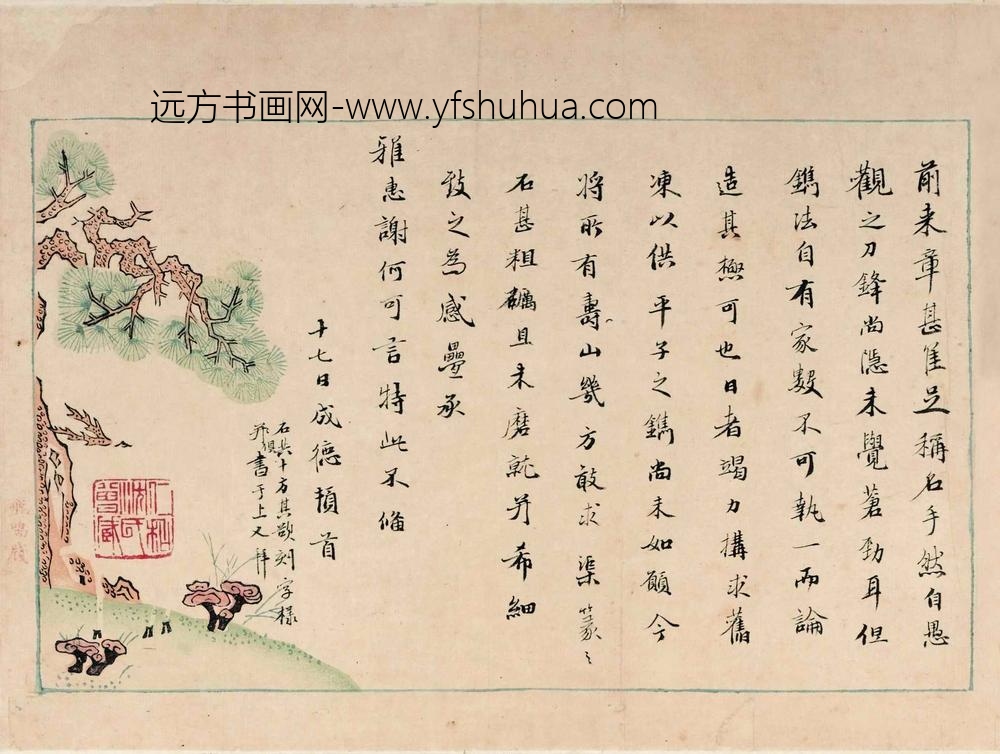 远方书画网-www.yfshuhua.com
前来章甚佳足稱名手然自愚
觀之刀鋒尚隱未覺蒼勁耳但
鐫法自有家數不可執一而論
造其極可也日者竭力搆求舊
凍以供平子之鐫尚未如願今
將所有壽山幾方敢求渠篆之
石甚粗礪且未磨就并希細
致之為感疊承
雅惠謝何可言特此不備
十七日成德頓首
石共十方其欲刻字樣
并俱書于上又拜
仁和沈氏曾藏